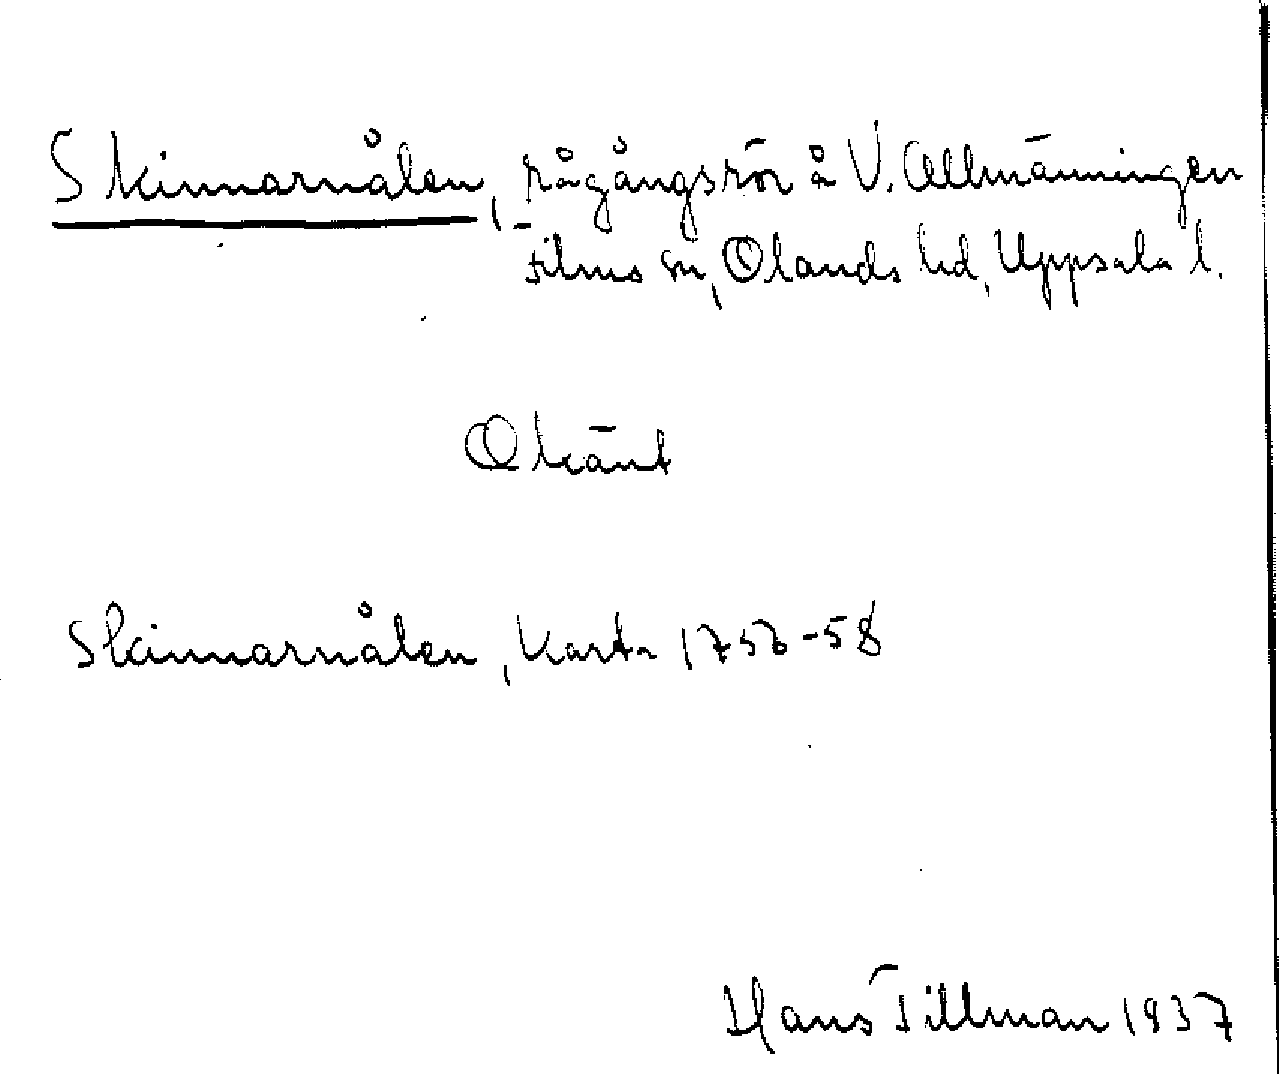 Skinnarnålen, rågångsrör å V. Allmänningen
Films sn, Olands hd, Uppsala l.
Okänt
Skinnarnålen, Karta 1756-58
Hans Tillman 1937